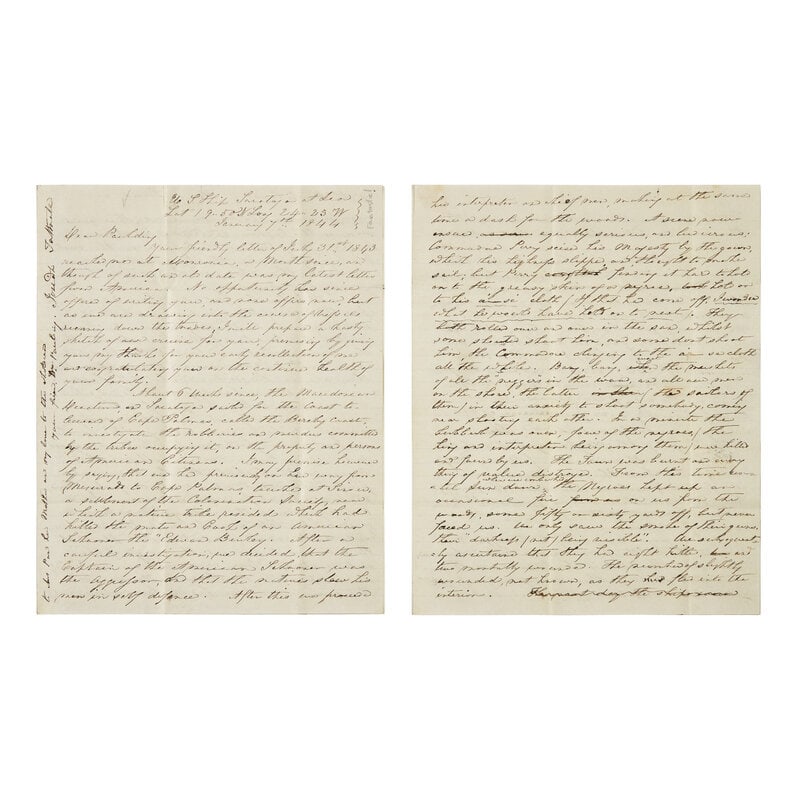 U S Ship Saratoga at Sea
Lat 19. 50 N Long 23 W
January 7th 1844
Dear Paulding
Your friendly letter of July 31st 1843
reached me at Monrovia, a month since, and
though of such an old date was my latest letter
from America. No opportunity has since
offered of writing you, and none offers now, but
as we are drawing into the course of ships
running down the trades, I will prepare a hasty
sketch of our cruise for you, premising by giving
you my thanks for your early recollection of me
and congratulating you on the continued health of
your family.
About 6 weeks since, the Macedonian
Decatur and Saratoga sailed for the Coast to
of Cape Palmas, called the Bereby Coast,
to investigate the robberies and murders committed
by the tribes occupying it, on the property and persons
of American Citizens. I may premise however
by saying, that we had previously on our way from
Mesurado to Cape Palmas touched at Sinoe,
a settlement of the Colonization Society, near
which a native tribe resided which had
killed the mate and Cook of an American
Schooner the "Edward Burley". After a
careful investigation, we decided that the
Captain of the American Schooner was
the aggressor, and that the natives slew his
men in self defence. After this we proceeded
his interpreter and chief men, making at the same
time a dash for the woods. A scene now
ensued equally serious, and ludicrous;
Commodore Perry seized his Majesty by the gown,
which his kingship slipped and thought to make
sail, but Perry finding it hard to hold
on to the greasy skin of a negro, held on
to his cloth (If that had come off, I wonder
what he would have held on to next). They
both rolled over and over in the sand, whilst
some shouted shoot him, and some dont shoot
him, the Commodore clinging to the cloth
all the while. Bang, bang, went the muskets
of all the niggers in the town, and all our men
on the shore, the latter (the sailors of
them) in their anxiety to shoot somebody, coming
near shooting each other. In a minute the
hubbub was over, four of the negroes (the
King and interpreter being among them) were killed
and four by us. The Town was burnt and every
thing of value destroyed. From this time
until Sun down, the Negroes kept up an
occasional fire on us from the
woods, some fifty or sixty yards off, but never
faced us. We only saw the smoke of their guns,
their "darkness (not) being visible". We subsequently
ascertained that they had eight killed, and
two mortally wounded. The number of slightly
wounded, not known, as they had fled into the
interior.